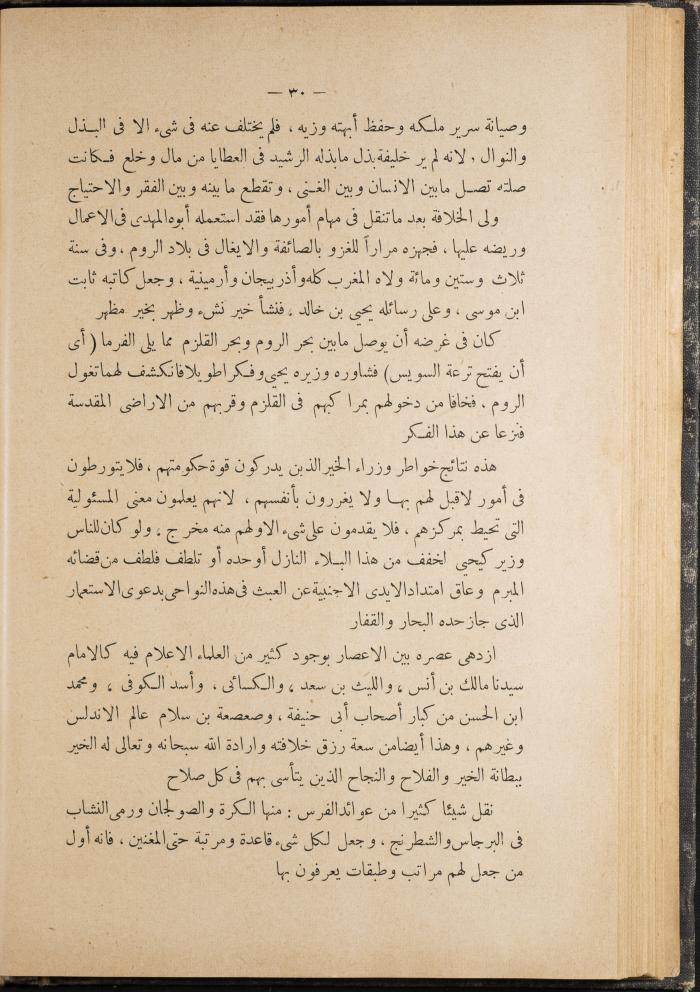 — ٣٠ —
وصيانة سرير ملكه وحفظ أبهته وزيه ، فلم يختلف عنه فى شىء الا فى البذل
والنوال ، لانه لم ير خليفة بذل مابذله الرشيد فى العطايا من مال وخلع فكانت
صلته تصل مابين الانسان وبين الغنى ، وتقطع ما بينه وبين الفقر والاحتياج
ولى الخلافة بعد ماتنقل فى مهام أمورها فقد استعمله أبوه المهدى فى الاعمال
وريضه عليها ، فجهزه مراراً للغزو بالصائفة والايغال فى بلاد الروم ، وفى سنة
ثلاث وستين ومائة ولاه المغرب كله وأذربيجان وأرمينية ، وجعل كاتبه ثابت
ابن موسى ، وعلى رسائله يحيى بن خالد ، فنشأ خير نشء وظهر بخير مظهر
كان فى غرضه أن يوصل مابين بحر الروم وبحر القلزم مما يلى الفرما ( أى
أن يفتح ترعة السويس) فشاوره وزيره يحيى وفكرا طويلا فانكشف لهما تغول
الروم ، فخافا من دخولهم بمراكبهم فى القلزم وقربهم من الاراضى المقدسة
فنزعا عن هذا الفكر
هذه نتائج خواطر وزراء الخير الذين يدركون قوة حكومتهم ، فلا يتورطون
فى أمور لاقبل لهم بها ولا يغررون بأنفسهم ، لانهم يعلمون معنى المسئولية
التى تحيط بمركزهم ، فلا يقدمون على شىء الا ولهم منه مخرج ، ولو كان للناس
وزير كيحيى لخفف من هذا البلاء النازل أو حده أو تلطف فلطف من قضائه
المبرم وعاق امتداد الايدى الاجنبية عن العبث فى هذه النواحى بدعوى الاستعمار
الذى جاز حده البحار والقفار
ازدهى عصره بين الاعصار بوجود كثير من العلماء الاعلام فيه كالامام
سيدنا مالك بن أنس ، والليث بن سعد ، والكسائى ، وأسد الكوفى ، ومحمد
ابن الحسن من كبار أصحاب أبى حنيفة ، وصعصعة بن سلام عالم الاندلس
وغيرهم ، وهذا أيضا من سعة رزق خلافته وارادة الله سبحانه وتعالى له الخير
ببطانة الخير والفلاح والنجاح الذين يتأسى بهم فى كل صلاح
نقل شيئا كثيرا من عوائد الفرس : منها الكرة والصولجان ورمى النشاب
فى البرجاس والشطرنج ، وجعل لكل شىء قاعدة ومرتبة حتى المغنين ، فانه أول
من جعل لهم مراتب وطبقات يعرفون بها